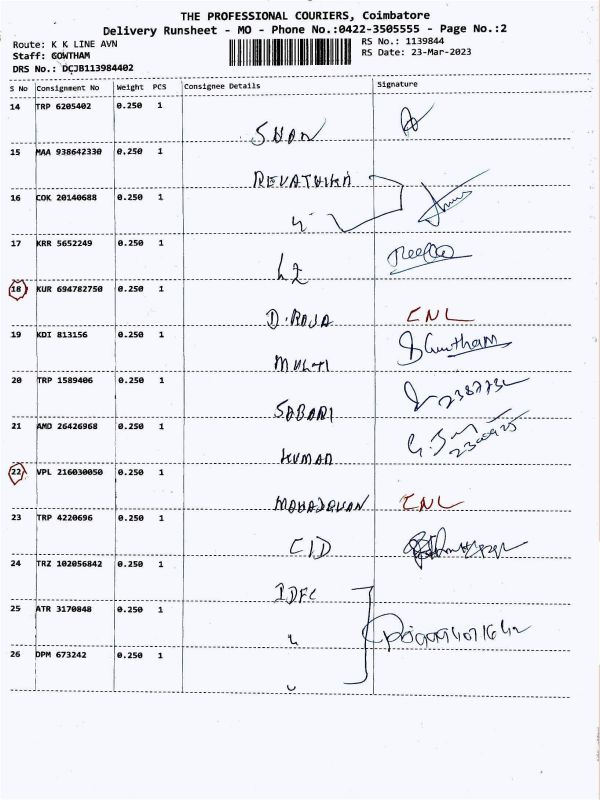 THE PROFESSIONAL COURIERS, Coimbatore
Delivery Runsheet - MO - Phone No.:0422-3505555 - Page No.:2
Route: K K LINE AVN
RS No.: 1139844
Staff: GOWTHAM
RS Date: 23-Mar-2023
DRS No.: DCJB113984402
S No Consignment No Weight PCS Consignee Details Signature
14 TRP 6205402 0.250 1
SHAN
15 MAA 938642330 0.250 1
REVATHIKA
16 COK 20140688 0.250 1
17 KRR 5652249 0.250 1
18 KUR 694782750 0.250 1
D. RAJA CNL
19 KDI 813156 0.250 1
MULTI Gowtham
20 TRP 1589406 0.250 1
SABARI
21 AMD 26426968 0.250 1
KUMAR
22 VPL 216030050 0.250 1
MAHADEVAN CNL
23 TRP 4220696 0.250 1
CID
24 TRZ 102056842 0.250 1
IDFC
25 ATR 3170848 0.250 1
26 DPM 673242 0.250 1